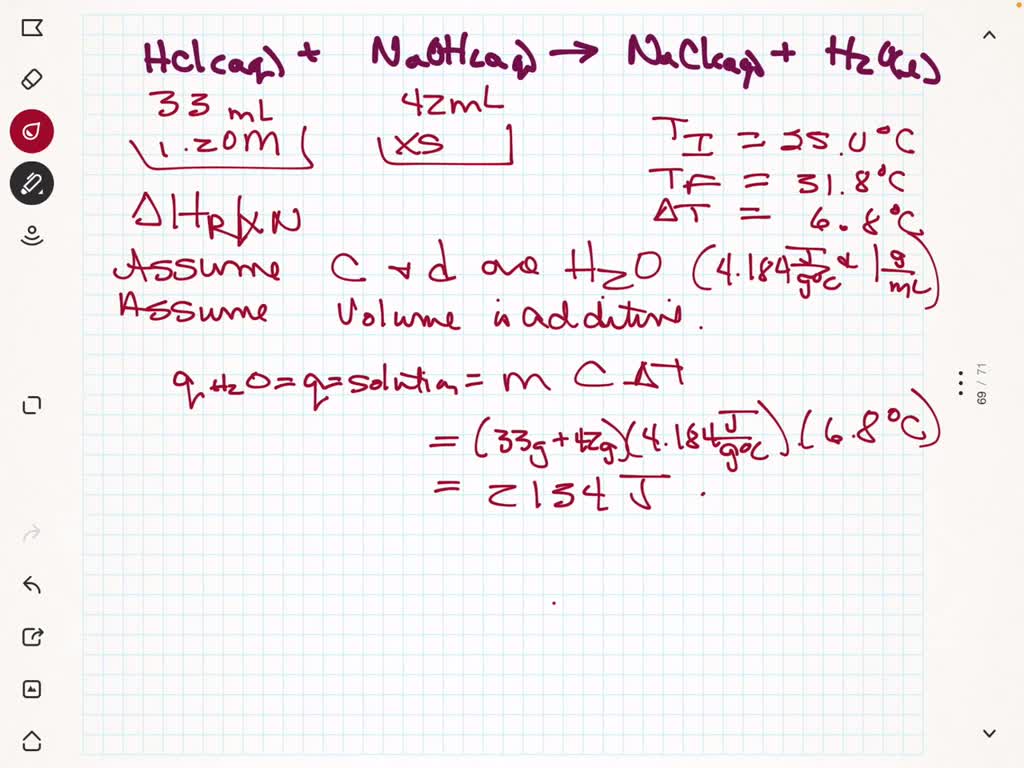 HCl(aq) + NaOH(aq) → NaCl(aq) + H2O(l)
33 mL 42mL
1.20M XS
TI = 25.0°C
TF = 31.8°C
ΔT = 6.8°C
ΔHRXN
Assume C & d are H2O (4.184 J/g°C & 1 g/mL)
Assume Volume is additive.
qH2O = q = solution = m C ΔT
= (33g + 42g)(4.184 J/g°C).(6.8°C)
= 2134 J .
69 / 71